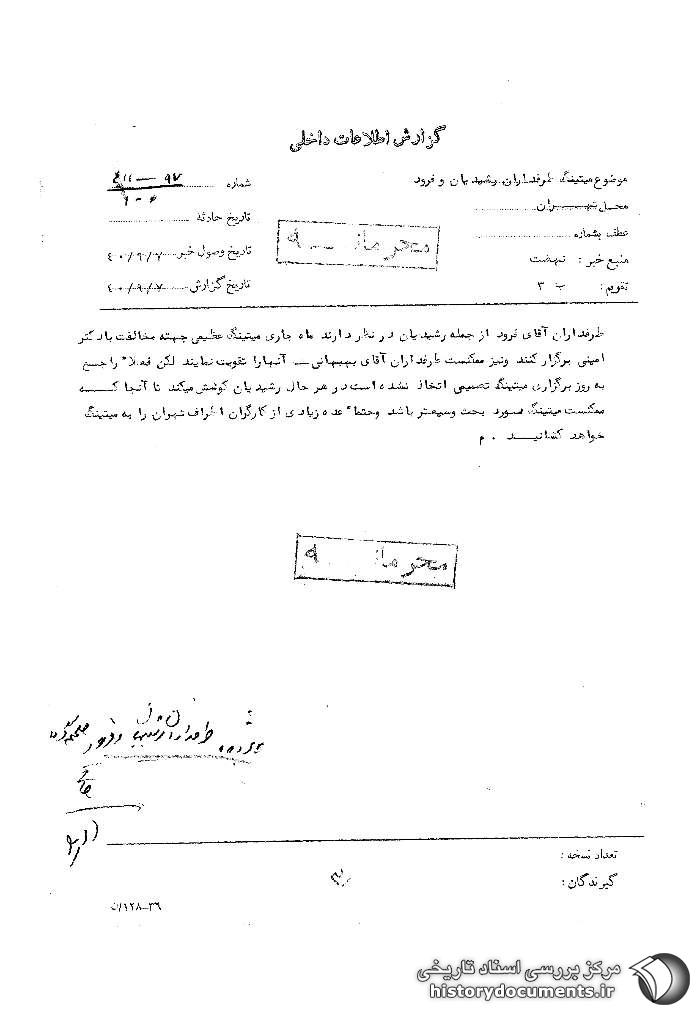 گزارش اطلاعات داخلی
موضوع میتینگ طرفداران رشیدیان و فرود
شماره
محل تهران
تاریخ حادثه
عطف بشماره
محرمانه
تاریخ وصول خبر ۴۰/۹/۷
منبع خبر : نهضت
تاریخ گزارش ۴۰/۹/۷
تقویم : ب ۳
طرفداران آقای فرود از جمله رشیدیان در نظر دارند ماه جاری میتینگ عظیمی جهته مخالفت با دکتر
امینی برگزار کنند ونیز ممکنست طرفداران آقای بهبهانی ــ آنهارا تقویت نمایند لکن فعلا" راجع
به روز برگزاری میتینگ تصمیمی اتخاذ نشده است در هر حال رشیدیان کوشش میکند تا آنجا که
ممکنست میتینگ مورد بحث وسیعتر باشد وحتما" عده زیادی از کارگران اطراف تهران را به میتینگ
خواهد کشانید . م
محرمانه
تعداد نسخه :
گیرندگان :
۳۶–۱۲۸/ن
مرکز بررسی اسناد تاریخی
historydocuments.ir